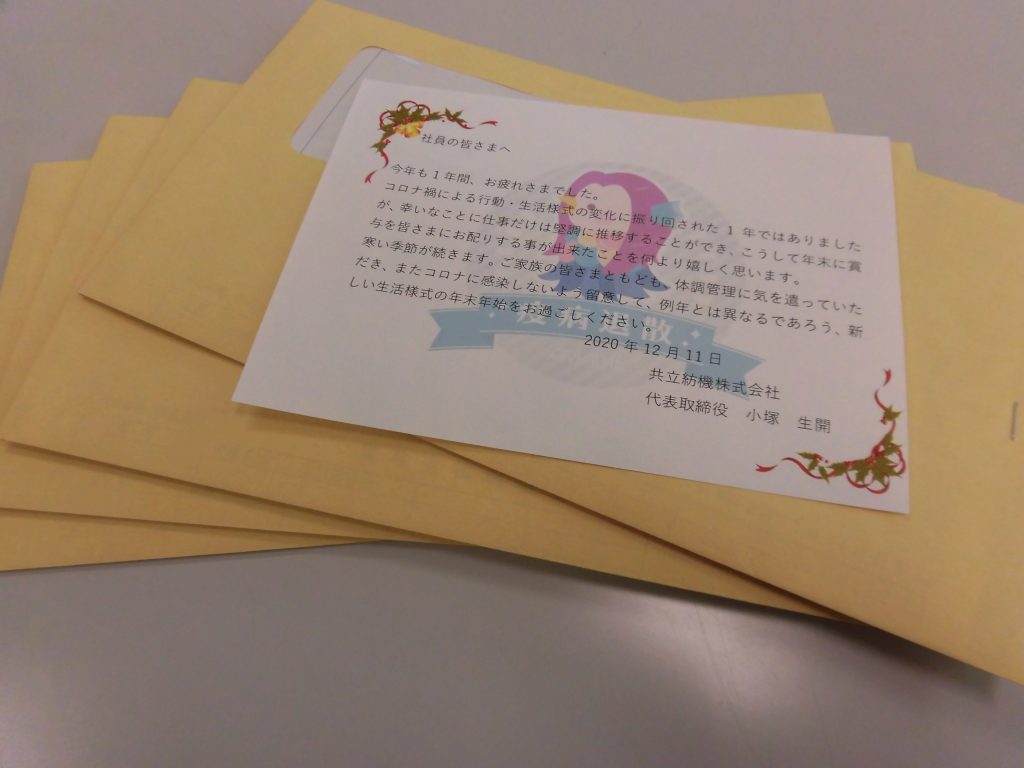 社員の皆さまへ
今年も1年間、お疲れさまでした。
コロナ禍による行動・生活様式の変化に振り回された1年ではありました
が、幸いなことに仕事だけは堅調に推移することができ、こうして年末に賞
与を皆さまにお配りする事が出来たことを何より嬉しく思います。
寒い季節が続きます。ご家族の皆さまともども、体調管理に気を遣っていた
だき、またコロナに感染しないよう留意して、例年とは異なるであろう、新
しい生活様式の年末年始をお過ごしください。
2020年12月11日
共立紡機株式会社
代表取締役 小塚 生開
疫病退散